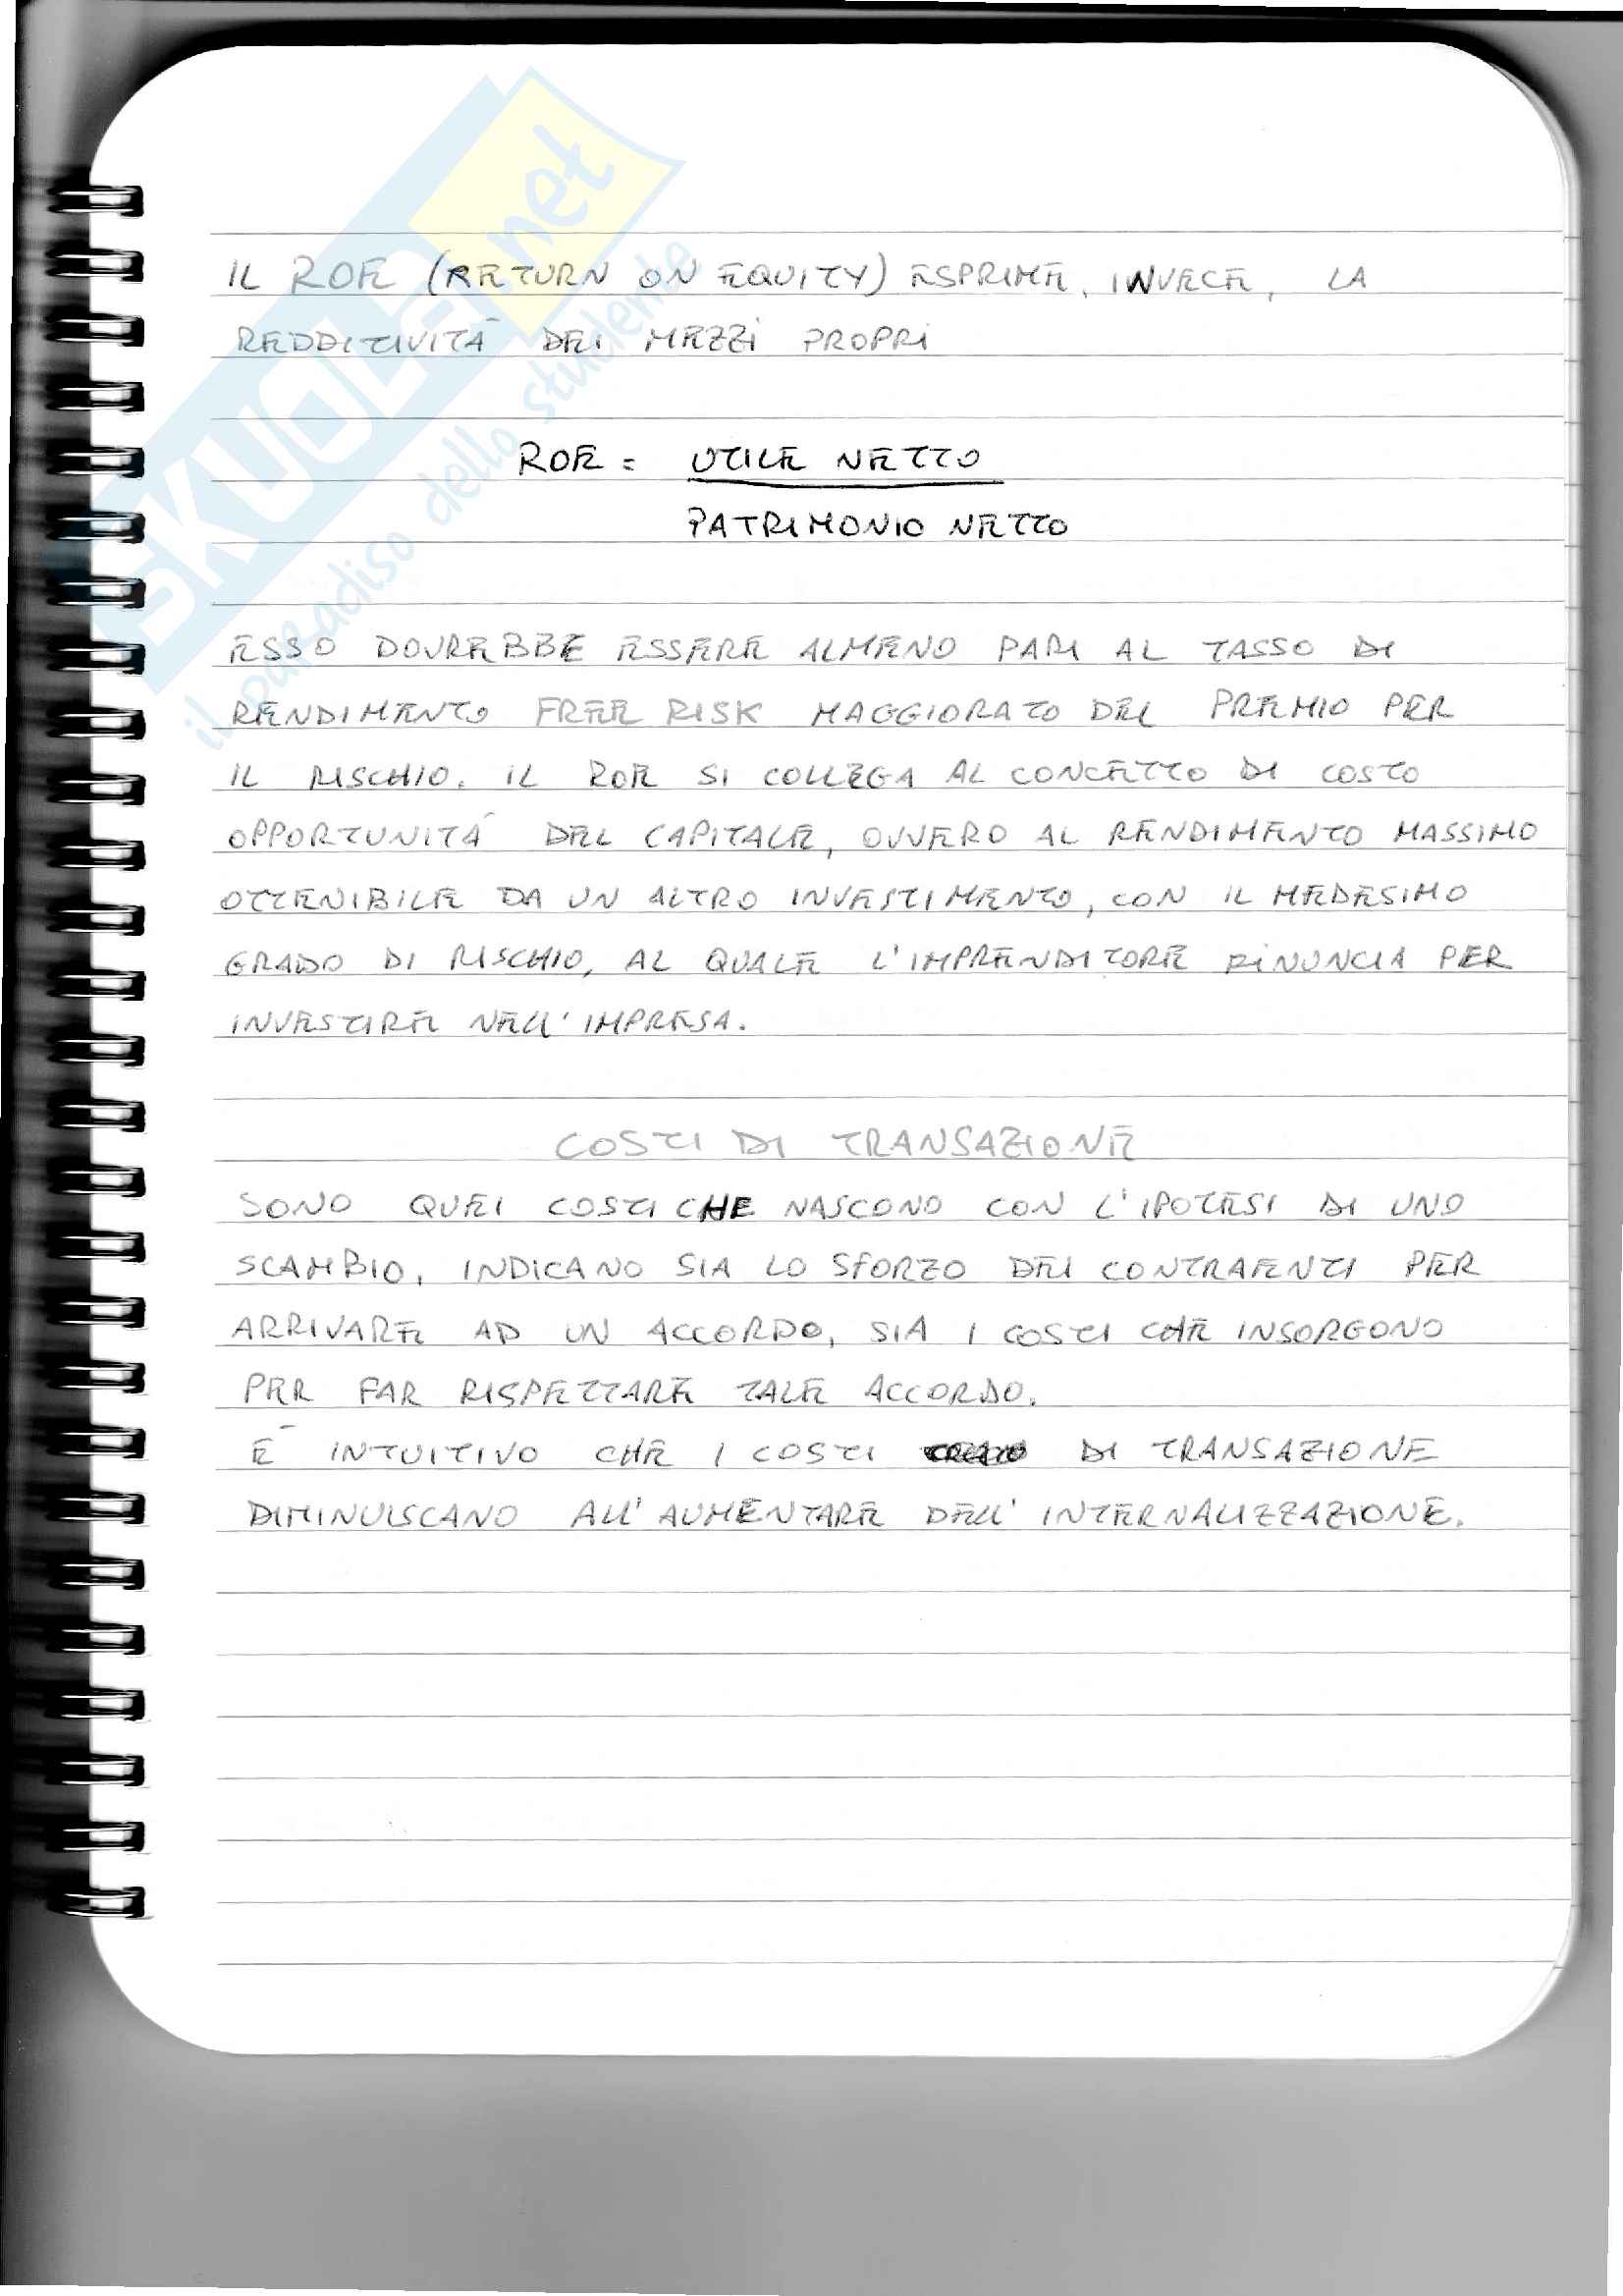 SKUOLA.net
il paradiso dello studente
IL ROE (RETURN ON EQUITY) ESPRIME, INVECE, LA
REDDITIVITÀ DEI MEZZI PROPRI
ROE = UTILE NETTO
PATRIMONIO NETTO
ESSO DOVREBBE ESSERE ALMENO PARI AL TASSO DI
RENDIMENTO FREE RISK MAGGIORATO DEL PREMIO PER
IL RISCHIO. IL ROE SI COLLEGA AL CONCETTO DI COSTO
OPPORTUNITÀ DEL CAPITALE, OVVERO AL RENDIMENTO MASSIMO
OTTENIBILE DA UN ALTRO INVESTIMENTO, CON IL MEDESIMO
GRADO DI RISCHIO, AL QUALE L'IMPRENDITORE RINUNCIA PER
INVESTIRE NELL'IMPRESA.
COSTI DI TRANSAZIONE
SONO QUEI COSTI CHE NASCONO CON L'IPOTESI DI UNO
SCAMBIO, INDICANO SIA LO SFORZO DEI CONTRAENTI PER
ARRIVARE AD UN ACCORDO, SIA I COSTI CHE INSORGONO
PER FAR RISPETTARE TALE ACCORDO.
È INTUITIVO CHE I COSTI DI TRANSAZIONE
DIMINUISCANO ALL'AUMENTARE DELL'INTERNALIZZAZIONE.